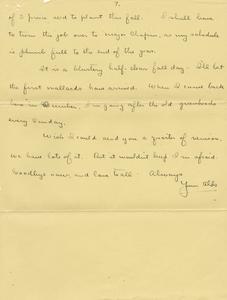 7.
of 2 prince and to plant this fall. I shall have
to turn the job over to major Chapin, as my schedule
is plumb full to the end of the year.
It is a blustery half-clear fall day. I'll bet
the first mallards have arrived. When I come back
here in December, I'm going after the old greenheads
every Sunday.
Wish I could send you a quarter of venison.
We have lots of it. But it wouldn't keep I'm afraid.
Goodbye now, and love to all - Always
Your